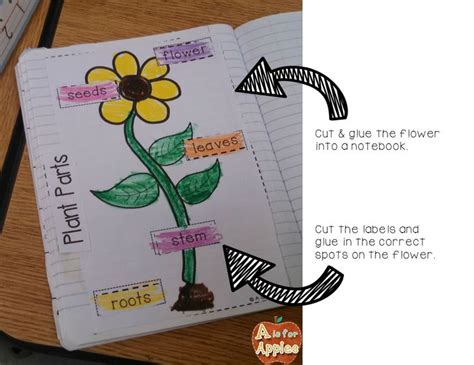 flower
seeds
leaves
Plant Parts
stem
roots
Cut & glue the flower
into a notebook.
Cut the labels and
glue in the correct
spots on the flower.
A is for
Apples